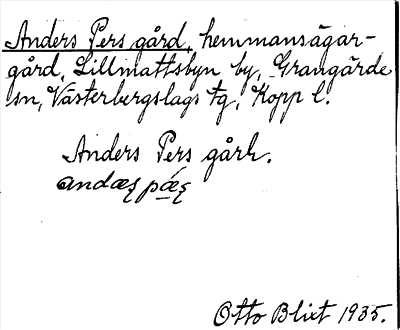 Anders Pers gård, hemmansägar-
gård, Lillmattsbyn by, Grangärde
sn, Västerbergslags tg, Kopp l.
Anders Pers gård.
Otto Blixt 1935.